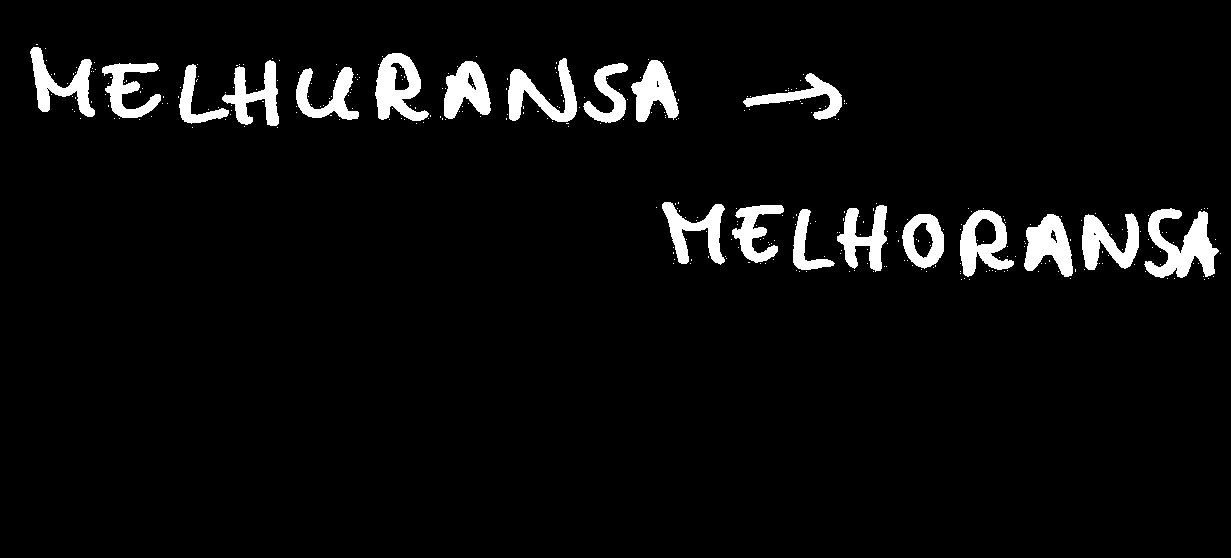 MELHURANSA →
MELHORANSA